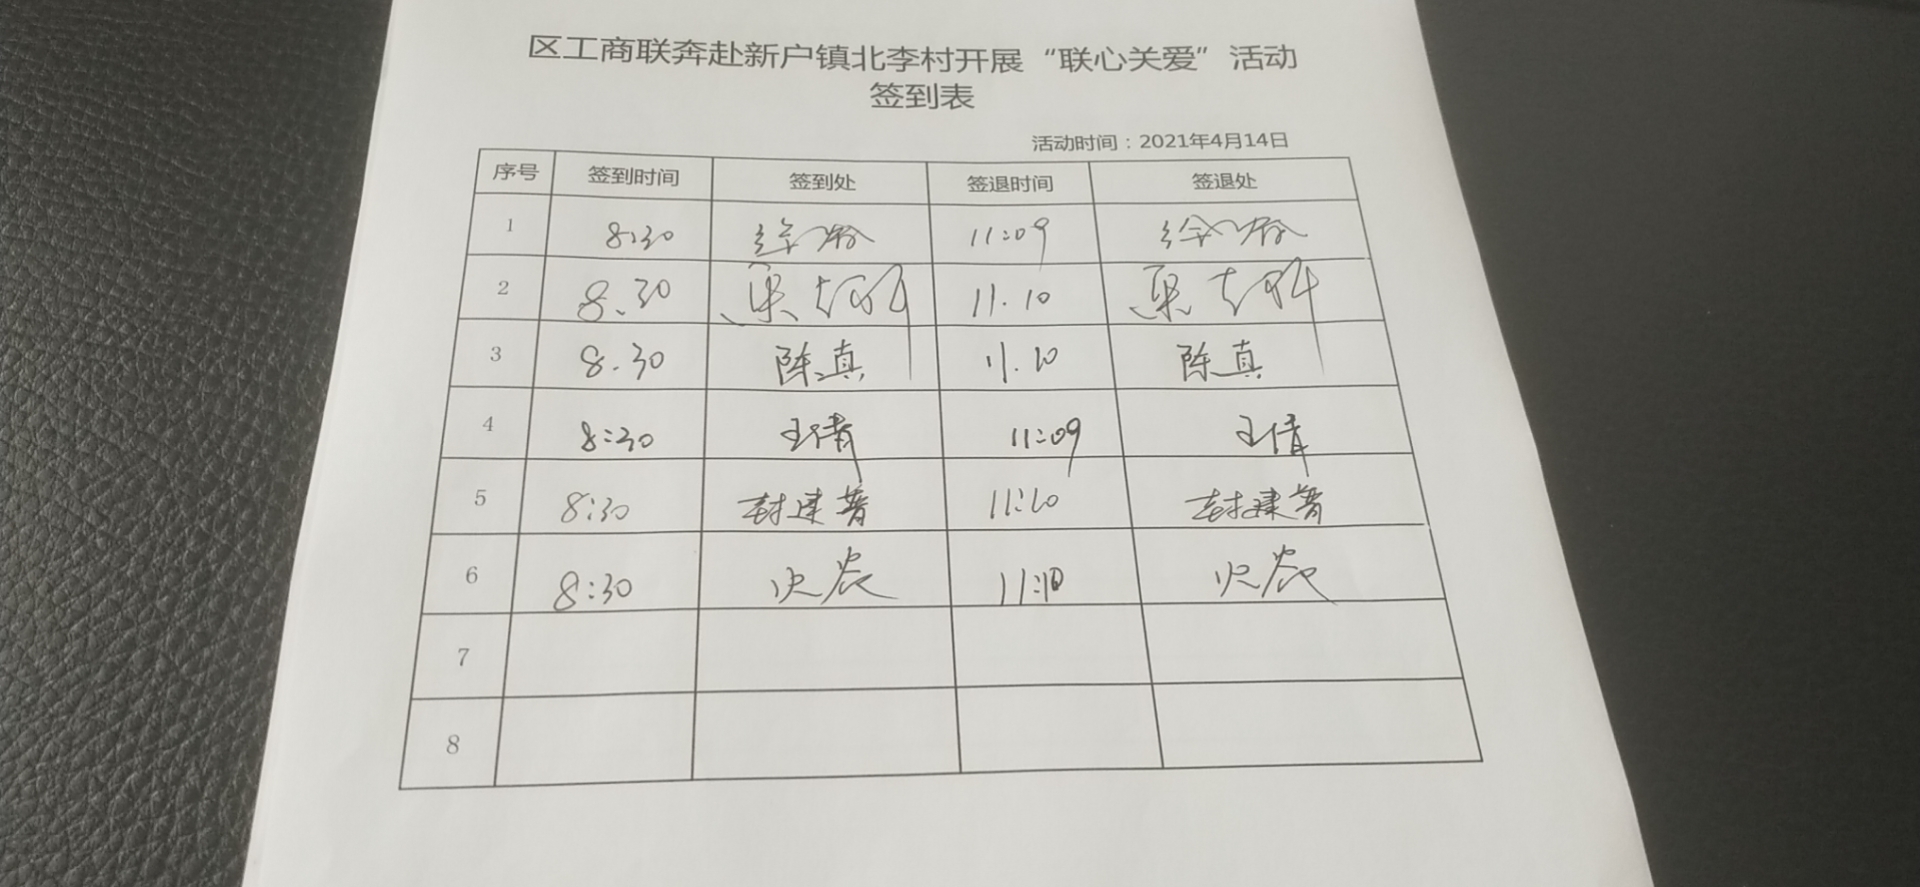 区工商联奔赴新户镇北李村开展“联心关爱”活动
签到表
活动时间：2021年4月14日
序号 签到时间 签到处 签退时间 签退处
1 8:30 11:09
2 8.30 11.10
3 8.30 陈真 11.10 陈真
4 8:30 王倩 11:09 王倩
5 8:30 封建普 11:10 封建普
6 8:30 11:10
7
8